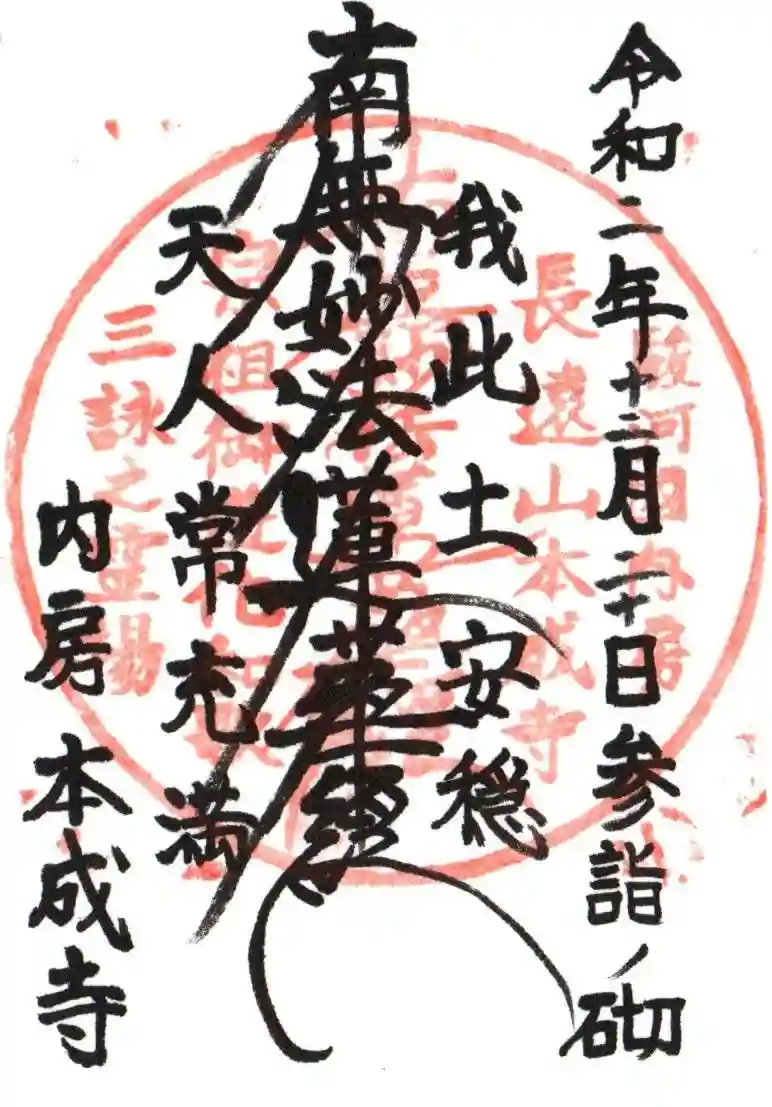 令和二年十二月二十日参詣ノ砌
我此土安穏
南無妙法蓮華経
天人常充満
内房 本成寺
駿河国内房
長遠山本成寺
三詠之霊場